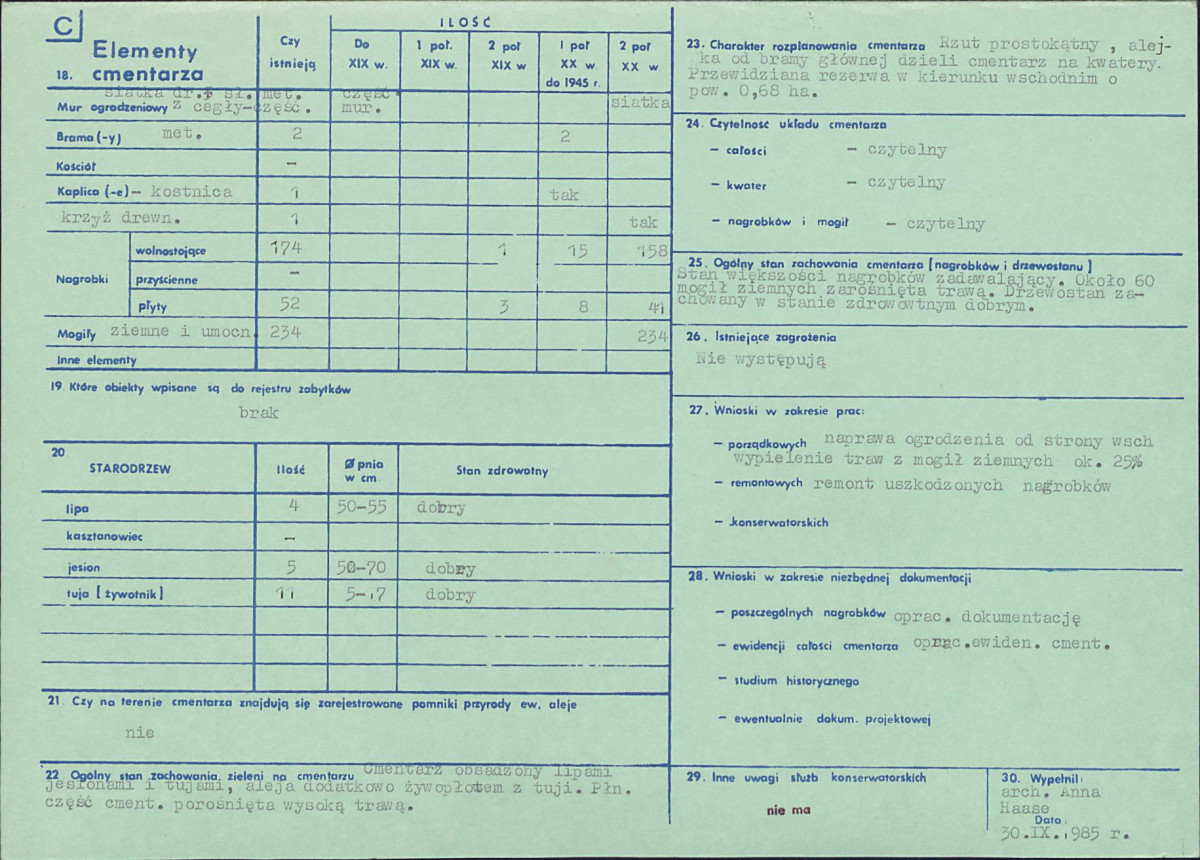 C
18. Elementy cmentarza
Czy istnieją
ILOŚĆ
Do XIX w.
1 poł. XIX w.
2 poł XIX w
I poł XX w. do 1945 r.
2 poł XX w
siatka dr.+ sł. met. część
Mur ogrodzeniowy z cegły-część. mur. siatka
Brama (-y) met. 2 2
Kościół –
Kaplica (-e) – kostnica 1 tak
krzyż drewn. 1 tak
Nagrobki
wolnostojące 174 1 15 158
przyścienne –
płyty 52 3 8 41
Mogiły ziemne i umocn. 234 234
Inne elementy
19. Które obiekty wpisane są do rejestru zabytków
brak
20
STARODRZEW Ilość Ø pnia w cm. Stan zdrowotny
lipa 4 50-55 dobry
kasztanowiec –
jesion 5 50-70 dobry
tuja [żywotnik] 11 5-17 dobry
21. Czy na terenie cmentarza znajdują się zarejestrowane pomniki przyrody ew. aleje
nie
22. Ogólny stan zachowania, zieleni na cmentarzu Cmentarz obsadzony lipami
jesionami i tujami, aleja dodatkowo żywopłotem z tuji. Płn.
część cment. porośnięta wysoką trawą.
23. Charakter rozplanowania cmentarza Rzut prostokątny , alej-
ka od bramy głównej dzieli cmentarz na kwatery.
Przewidziana rezerwa w kierunku wschodnim o
pow. 0,68 ha.
24. Czytelność układu cmentarza
– całości – czytelny
– kwater – czytelny
– nagrobków i mogił – czytelny
25. Ogólny stan zachowania cmentarza [nagrobków i drzewostanu]
Stan większości nagrobków zadawalający. Około 60
mogił ziemnych zarośnięta trawą. Drzewostan za-
chowany w stanie zdrowowtnym dobrym.
26. Istniejące zagrożenia
Nie występują
27. Wnioski w zakresie prac:
– porządkowych naprawa ogrodzenia od strony wsch
wypielenie traw z mogił ziemnych ok. 25%
– remontowych remont uszkodzonych nagrobków
– konserwatorskich
28. Wnioski w zakresie niezbędnej dokumentacji
– poszczególnych nagrobków oprac. dokumentację
– ewidencji całości cmentarza oprac.ewiden. cment.
– studium historycznego
– ewentualnie dokum. projektowej
29. Inne uwagi służb konserwatorskich
nie ma
30. Wypełnił:
arch. Anna
Haase
Data:
30.IX.1985 r.